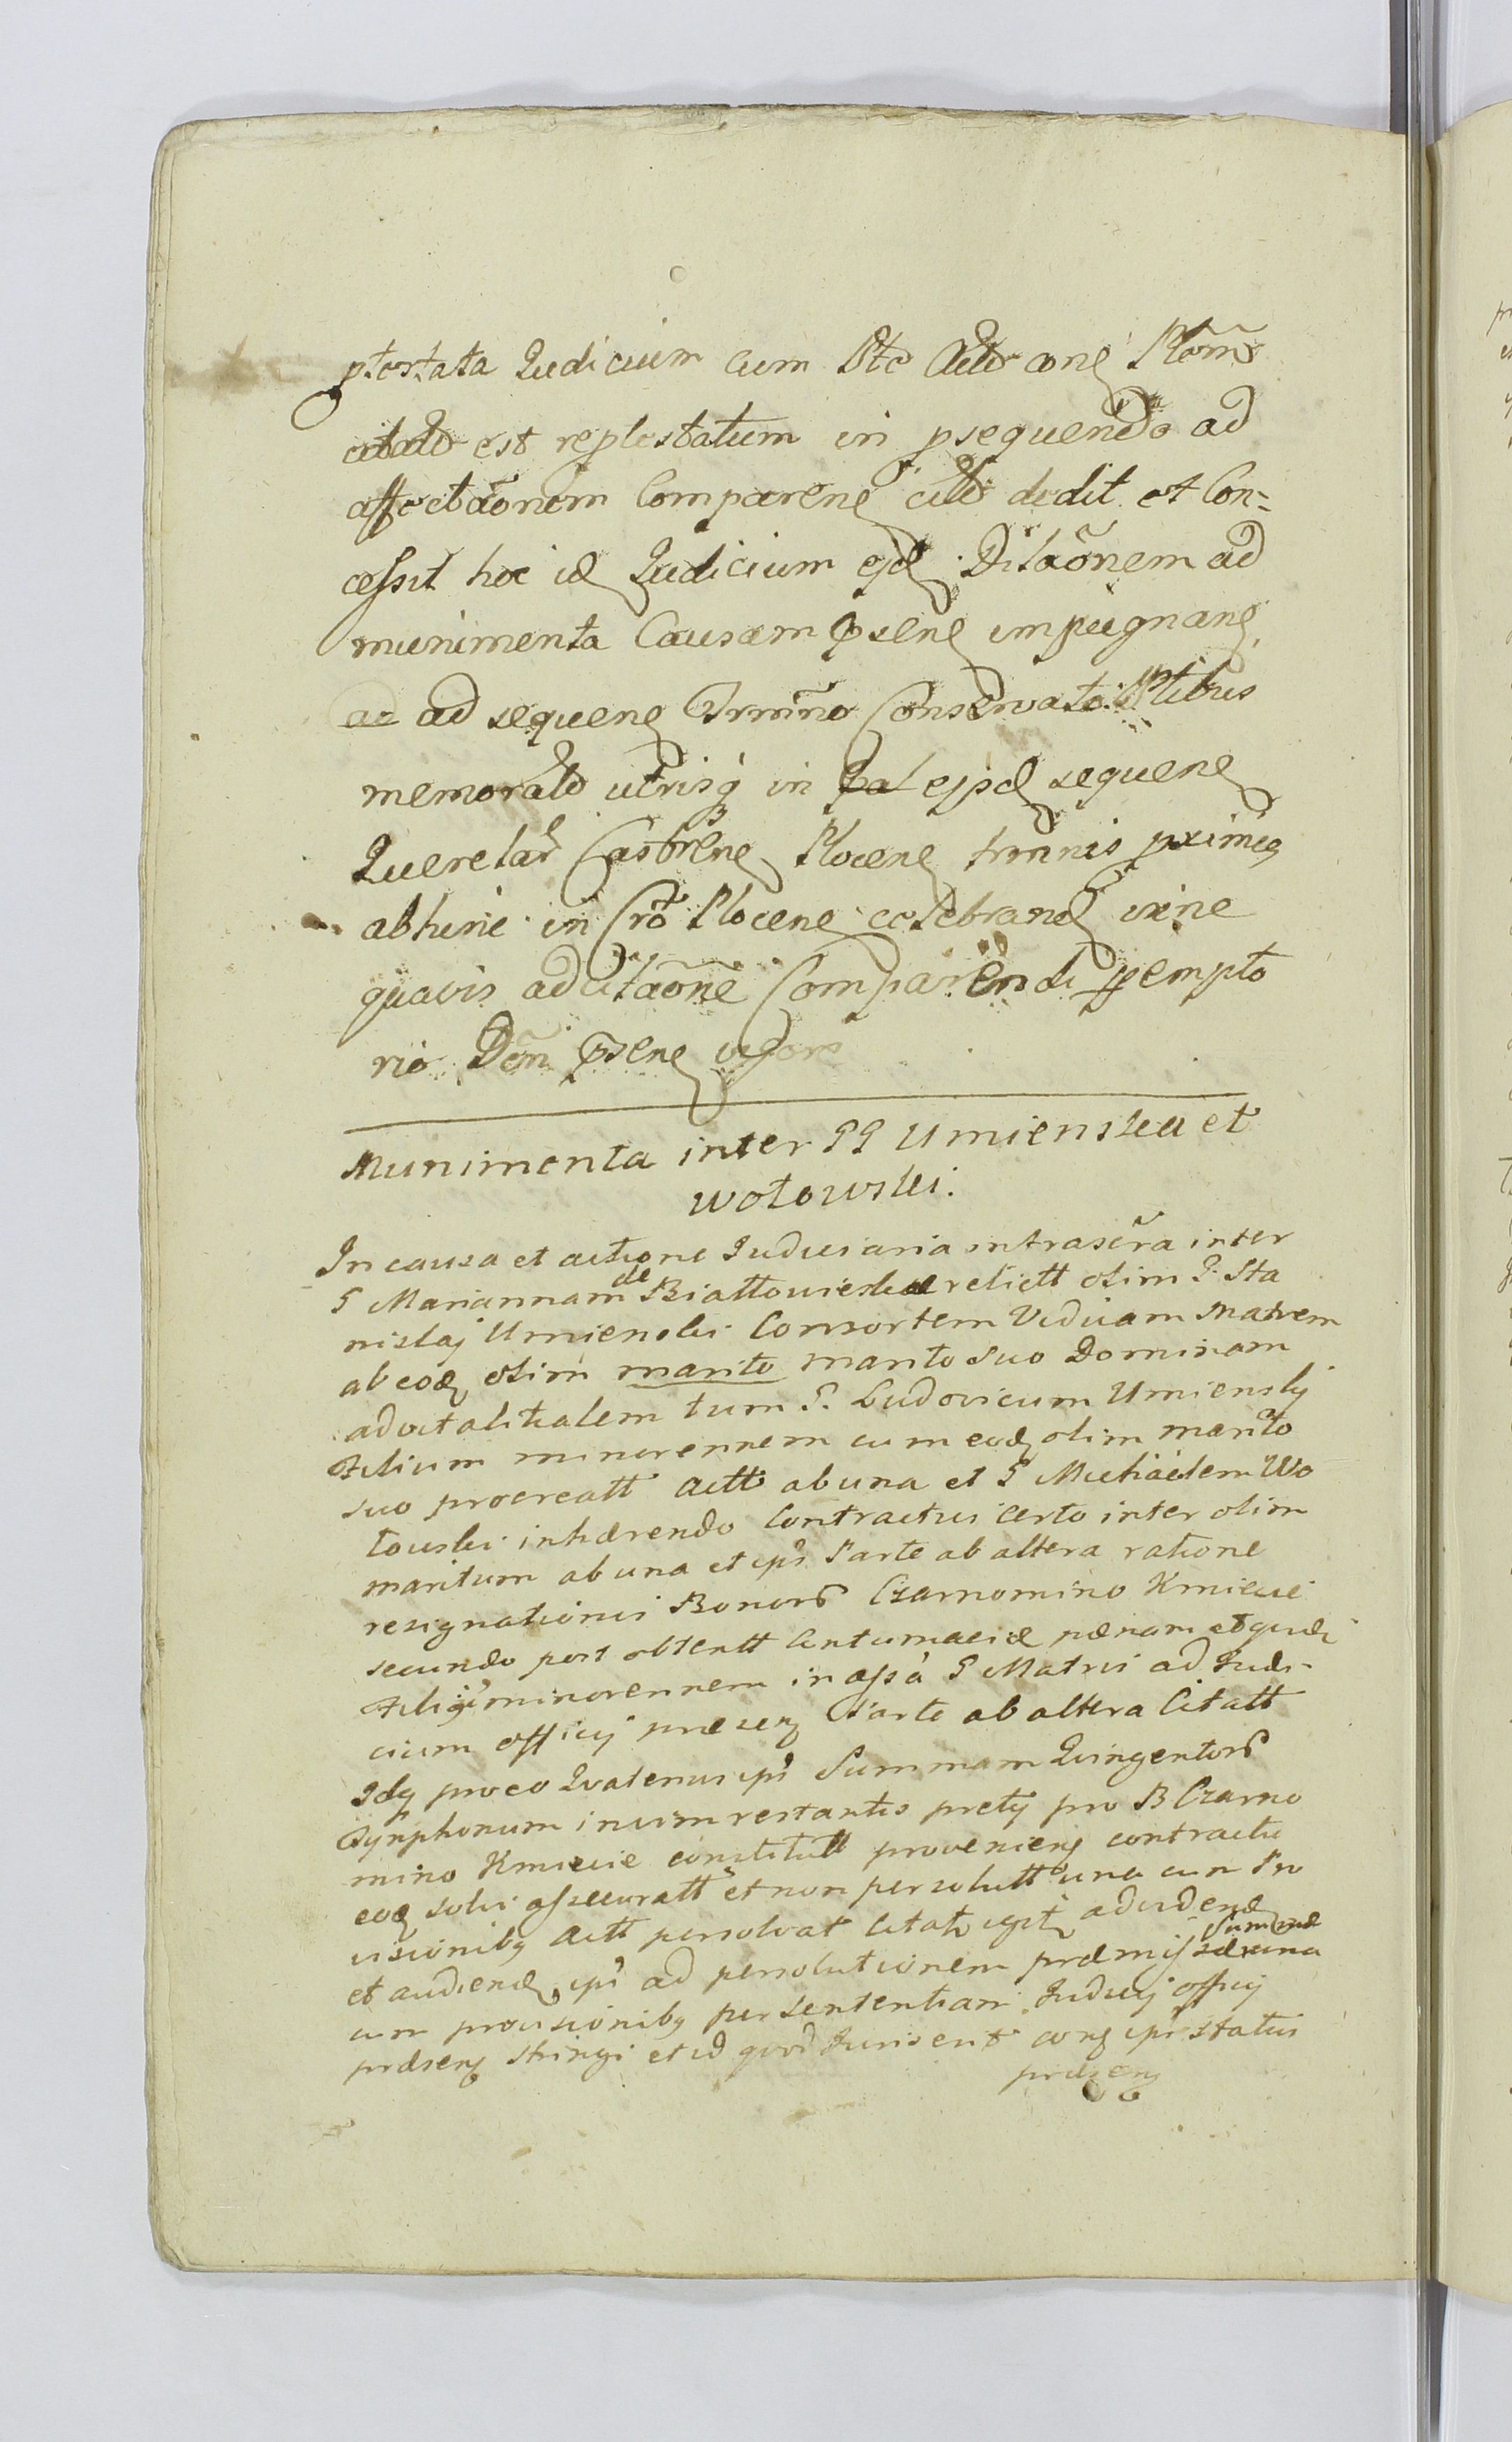 ptestata Judicium cum Pte Actt cong Plõnis
citatt est replestatum in psequendo ad
affectãonem Compareng citt dedit et Con=
cessit hoc id Judicium ejd Dilãonem ad
munimenta Causam pseng impugnang
ad ad sequeng Trmino Conservato Ptibus
memoratt utrisq in ejsd sequeng
Querelar Castreng Ploceng trmnis pximig
abhinc in Cro Ploceng celebrand vine
quavis adcitãone Comparendi pempto
rio Dõni pseng vigore
Munimenta inter PP Umienska et
Wołowski.
In causa et actione Judiciaria infrascra inter
P Mariannam de Białłowieskie relictt olim P. Sta
nislaj Umienski Consortem Viduam Matrem
ab eod olim marito marito suo Dominam
advitalitialem tum P. Ludovicum Umiensky
Filium minorennem cum eod olim marito
suo procreatt Actt ab una et P Michaelem Wo
łowski inhærendo Contractui certo inter olim
maritum ab una et ips Parte ab altera ratione
resignationis Bonorũ Czarnomino Kmiecie
secundo post obtentt Contumaciæ pænam
Filij minorennem in assã P Matris ad Judi-
cium officij præseng Parte ab altera Citatt
Idq pro eo Quatenus ips Summam Quingentorũ
Tynphonum in vim restantis prety pro B Czarno
mino Kmiecie constitutt provenieng contractu
eod solvi assecuratt et non persolutt una cum Pro
visionibg Actt persolvat Citatt advidend
et audiend ips ad persolutionem præmissæ Summæ una
cum provisionibg per sententiam Judicij officij
præseng stringi et id quod Juris erit cong ips status
præseng